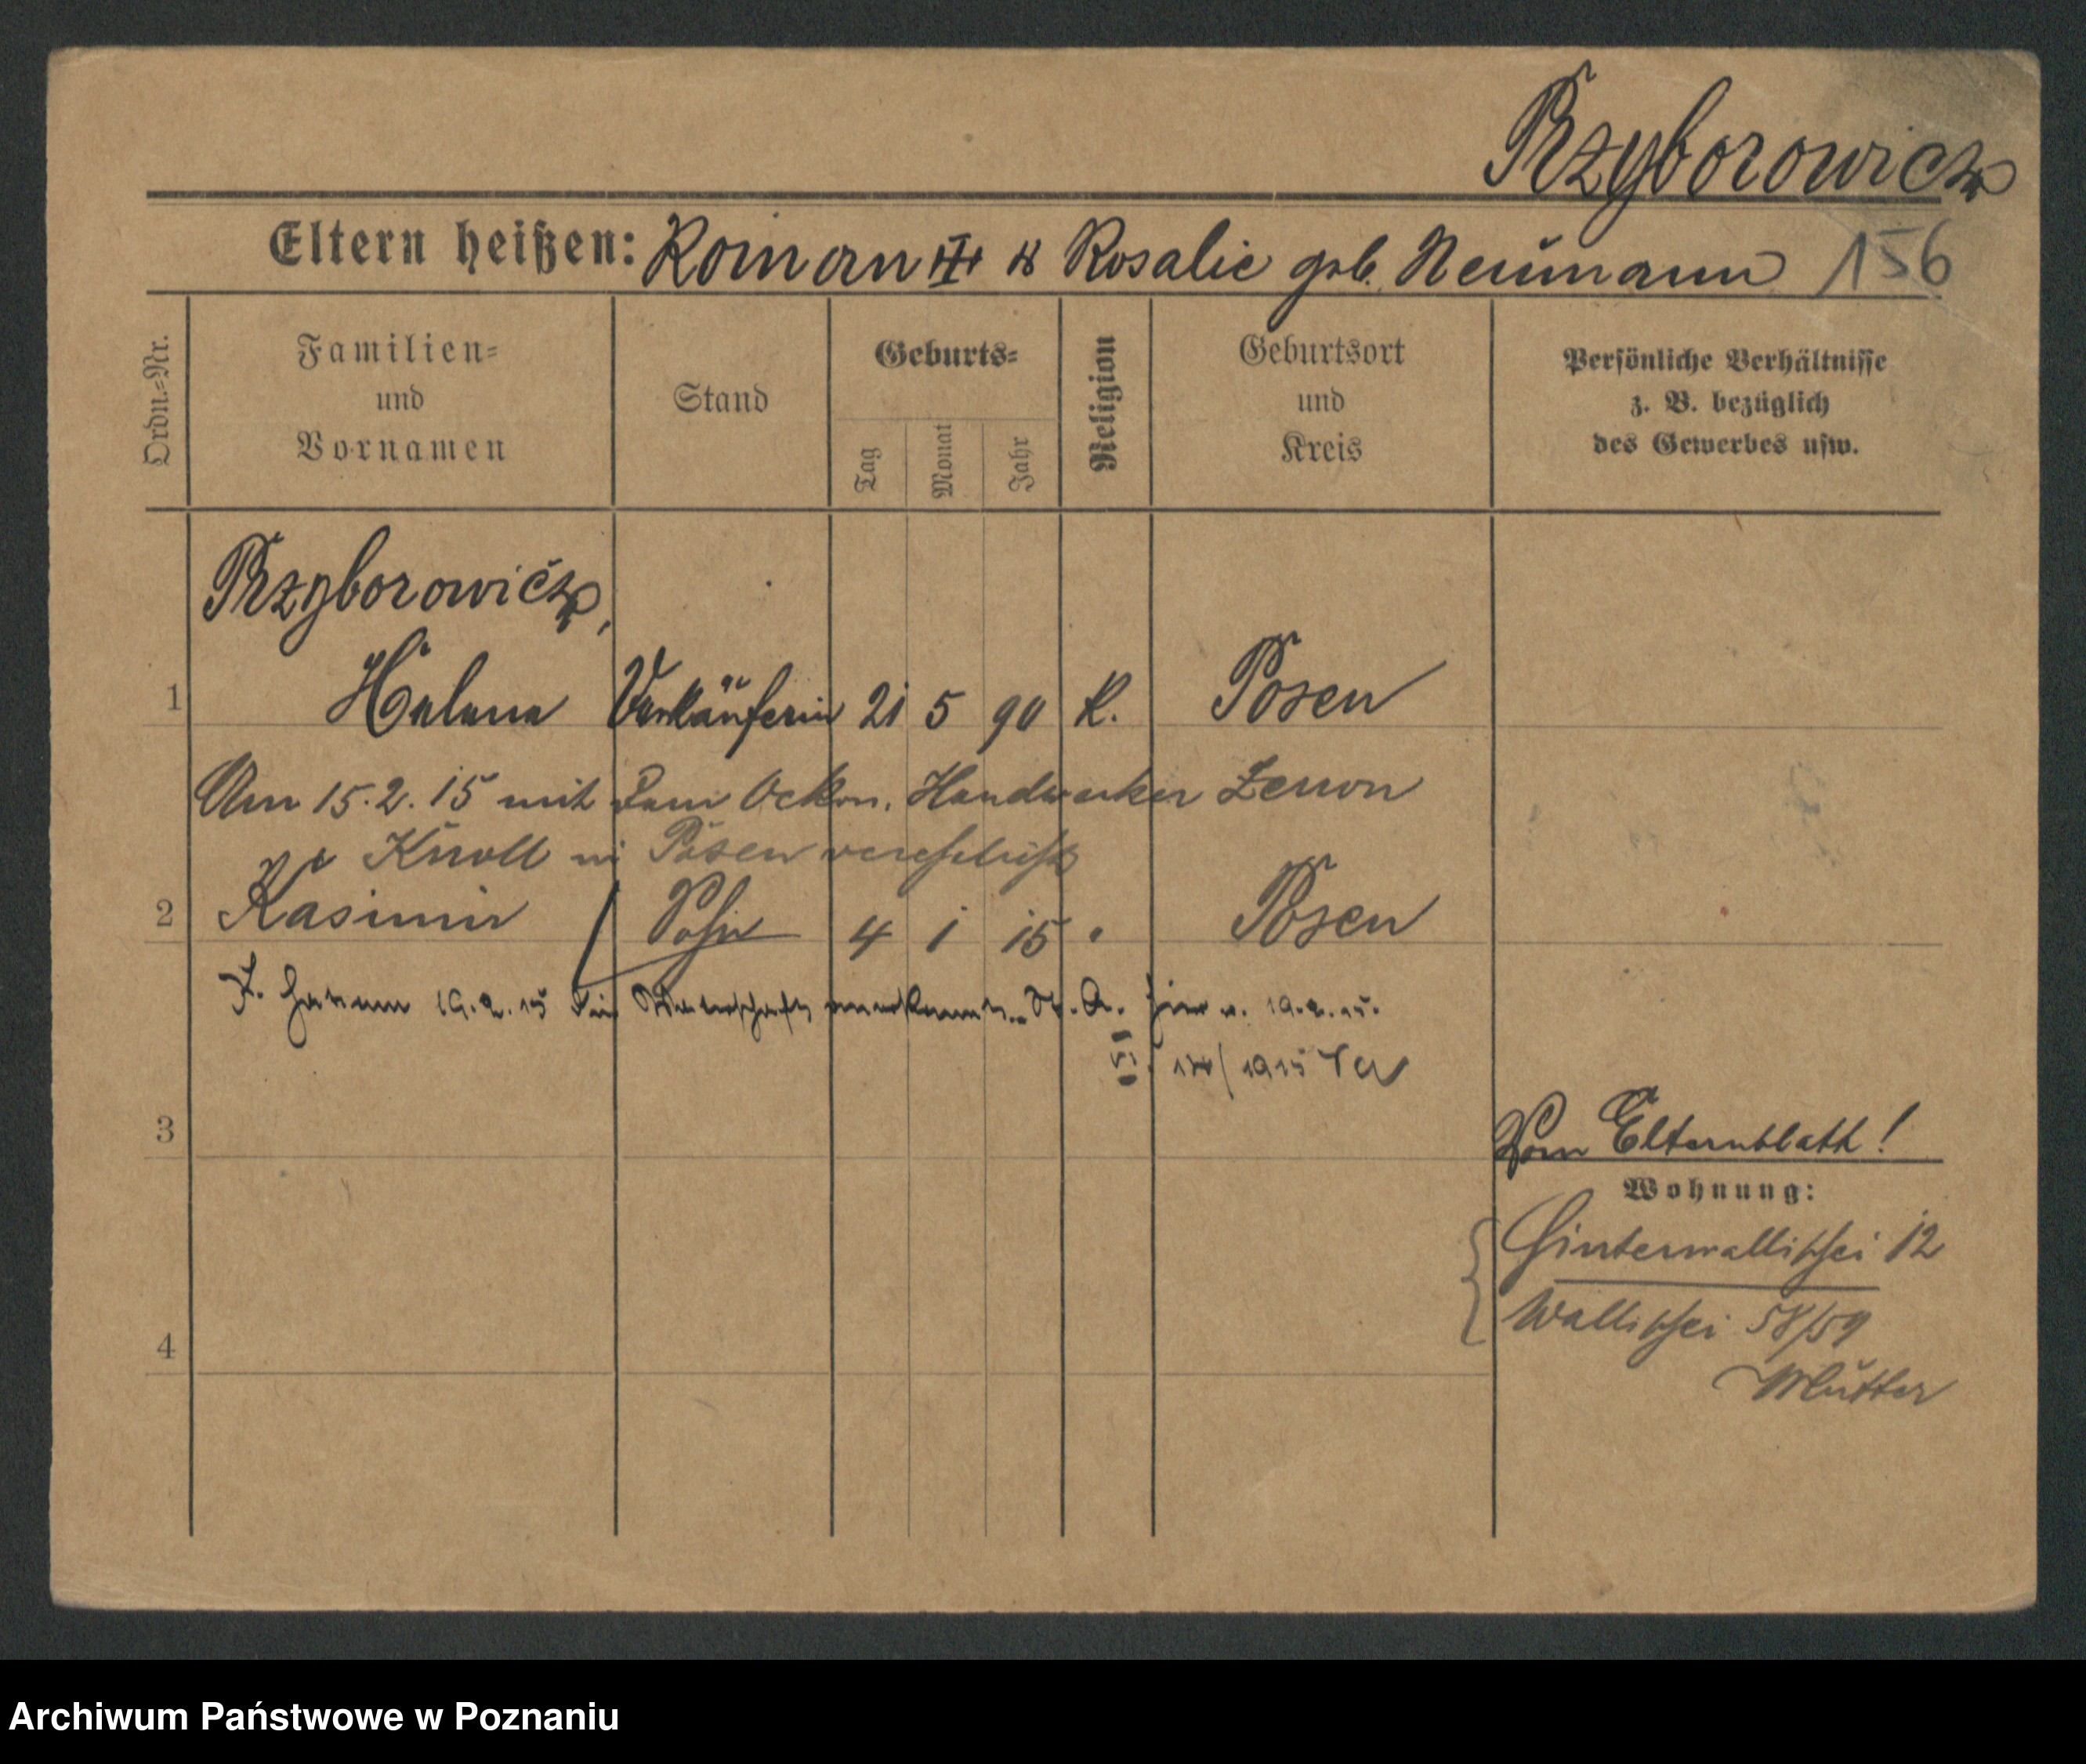 Przyborowicz
Eltern heißen: Roman u Rosalie geb. Neumann 156
Ordn.=Nr.
Familien=
und
Vornamen
Stand
Geburts=
Tag
Monat
Jahr
Religion
Geburtsort
und
Kreis
Persönliche Verhältnisse
z. B. bezüglich
des Gewerbes usw.
Przyborowicz,
1 Helene Verkäuferin 21 5 90 K. Posen
Am 15.2.15 mit dem Oekon. Handwerker
Knoll in Posen verehelicht
2 Kasimir Sohn 4 1 15 " Posen
19.2.15 die Vaterschaft anerkannt. St. A. hier v. 19.2.15.
1915
3
Vom Elternblatt!
Wohnung:
Hinterwallischei 12
Wallischei 58/59
Mutter
4
Archiwum Państwowe w Poznaniu